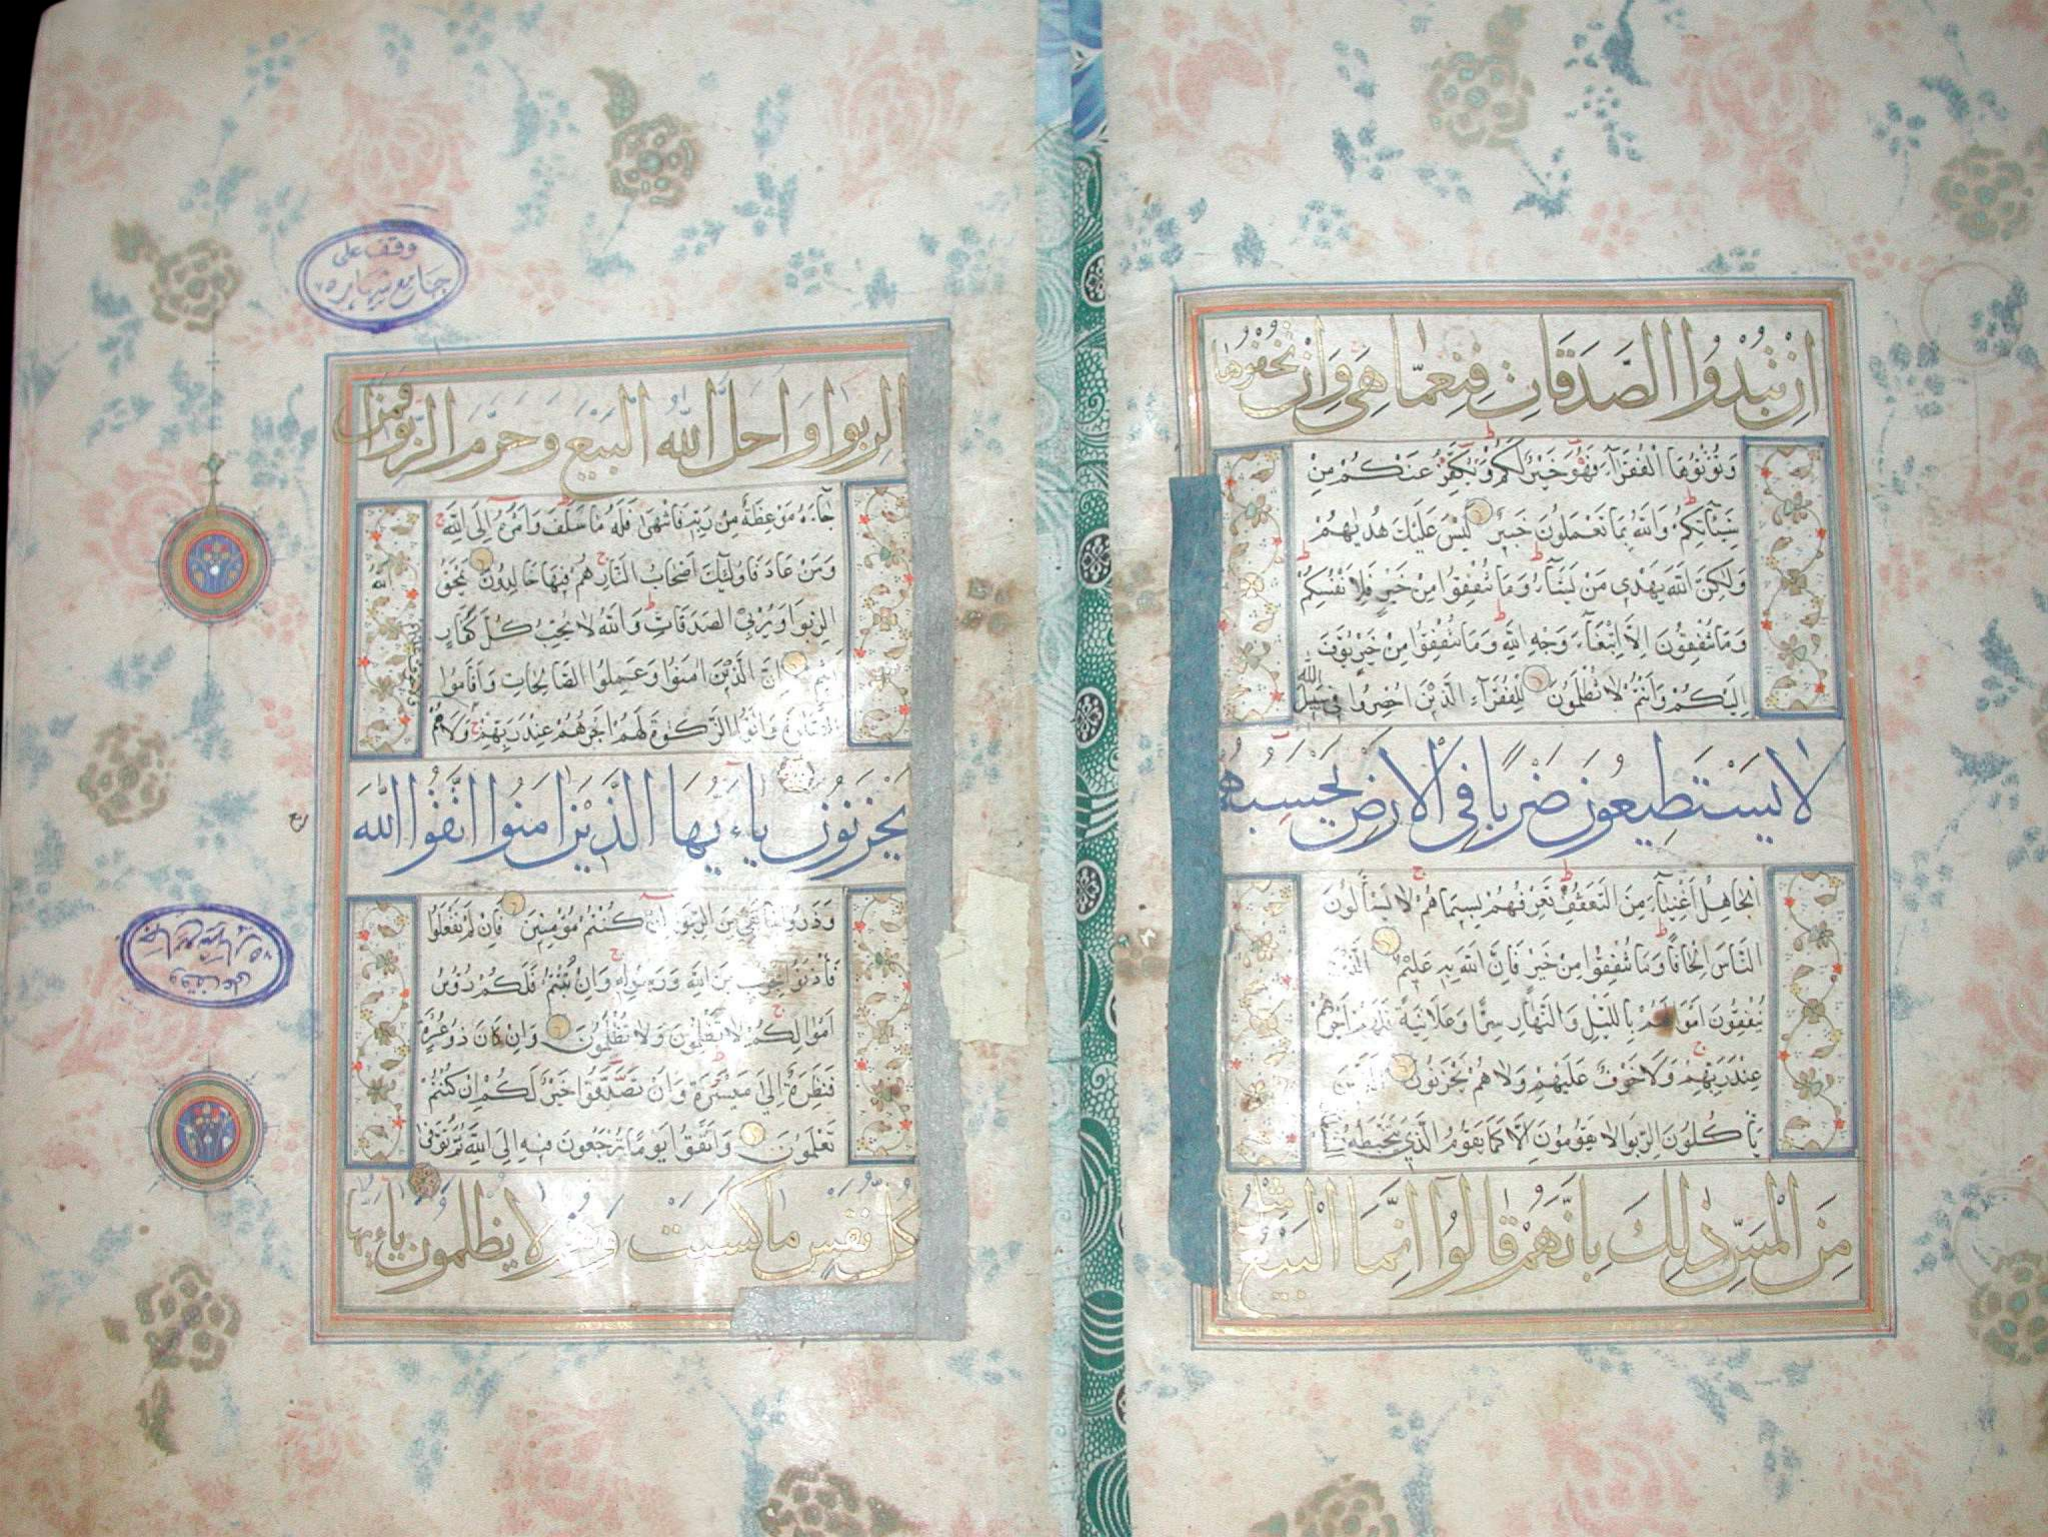 اِنْ تُبْدُوا الصَّدَقَاتِ فَنِعِمَّا هِيَ وَاِنْ تُخْفُوهَا
وَتُؤْتُوهَا الْفُقَرَآءَ فَهُوَ خَيْرٌ لَكُمْ وَنُكَفِّرُ عَنْكُمْ مِنْ
سَيِّئَاتِكُمْ وَاللّٰهُ بِمَا تَعْمَلُونَ خَبِيرٌ لَيْسَ عَلَيْكَ هُدٰيهُمْ
وَلٰكِنَّ اللّٰهَ يَهْدِي مَنْ يَشَآءُ وَمَا تُنْفِقُوا مِنْ خَيْرٍ فَلِاَنْفُسِكُمْ
وَمَا تُنْفِقُونَ اِلَّا ابْتِغَآءَ وَجْهِ اللّٰهِ وَمَا تُنْفِقُوا مِنْ خَيْرٍ يُوَفَّ
اِلَيْكُمْ وَاَنْتُمْ لَا تُظْلَمُونَ لِلْفُقَرَآءِ الَّذِينَ اُحْصِرُوا فِي سَبِيلِ اللّٰهِ
لَا يَسْتَطِيعُونَ ضَرْبًا فِي الْاَرْضِ يَحْسَبُهُمُ
الْجَاهِلُ اَغْنِيَآءَ مِنَ التَّعَفُّفِ تَعْرِفُهُمْ بِسِيمَاهُمْ لَا يَسْأَلُونَ
النَّاسَ اِلْحَافًا وَمَا تُنْفِقُوا مِنْ خَيْرٍ فَاِنَّ اللّٰهَ بِهِ عَلِيمٌ الَّذِينَ
يُنْفِقُونَ اَمْوَالَهُمْ بِاللَّيْلِ وَالنَّهَارِ سِرًّا وَعَلَانِيَةً فَلَهُمْ اَجْرُهُمْ
عِنْدَ رَبِّهِمْ وَلَا خَوْفٌ عَلَيْهِمْ وَلَا هُمْ يَحْزَنُونَ الَّذِينَ
يَأْكُلُونَ الرِّبٰوا لَا يَقُومُونَ اِلَّا كَمَا يَقُومُ الَّذِي يَتَخَبَّطُهُ الشَّيْطَانُ
مِنَ الْمَسِّ ذٰلِكَ بِاَنَّهُمْ قَالُوا اِنَّمَا الْبَيْعُ مِثْلُ
الرِّبٰوا وَاَحَلَّ اللّٰهُ الْبَيْعَ وَحَرَّمَ الرِّبٰوا فَمَنْ
جَآءَهُ مَوْعِظَةٌ مِنْ رَبِّهِ فَانْتَهٰى فَلَهُ مَا سَلَفَ وَاَمْرُهُ اِلَى اللّٰهِ
وَمَنْ عَادَ فَاُولٰئِكَ اَصْحَابُ النَّارِ هُمْ فِيهَا خَالِدُونَ يَمْحَقُ اللّٰهُ
الرِّبٰوا وَيُرْبِي الصَّدَقَاتِ وَاللّٰهُ لَا يُحِبُّ كُلَّ كَفَّارٍ
اَثِيمٍ اِنَّ الَّذِينَ اٰمَنُوا وَعَمِلُوا الصَّالِحَاتِ وَاَقَامُوا
الصَّلٰوةَ وَاٰتَوُا الزَّكٰوةَ لَهُمْ اَجْرُهُمْ عِنْدَ رَبِّهِمْ وَلَا هُمْ
يَحْزَنُونَ يَاءَيُّهَا الَّذِينَ اٰمَنُوا اتَّقُوا اللّٰهَ
وَذَرُوا مَا بَقِيَ مِنَ الرِّبٰوا اِنْ كُنْتُمْ مُؤْمِنِينَ فَاِنْ لَمْ تَفْعَلُوا
فَأْذَنُوا بِحَرْبٍ مِنَ اللّٰهِ وَرَسُولِهِ وَاِنْ تُبْتُمْ فَلَكُمْ رُؤُسُ
اَمْوَالِكُمْ لَا تَظْلِمُونَ وَلَا تُظْلَمُونَ وَاِنْ كَانَ ذُو عُسْرَةٍ
فَنَظِرَةٌ اِلٰى مَيْسَرَةٍ وَاَنْ تَصَدَّقُوا خَيْرٌ لَكُمْ اِنْ كُنْتُمْ
تَعْلَمُونَ وَاتَّقُوا يَوْمًا تُرْجَعُونَ فِيهِ اِلَى اللّٰهِ ثُمَّ تُوَفّٰى
كُلُّ نَفْسٍ مَا كَسَبَتْ وَهُمْ لَا يُظْلَمُونَ يَاءَيُّهَا
وقف على
جامع شهاره
وقف على